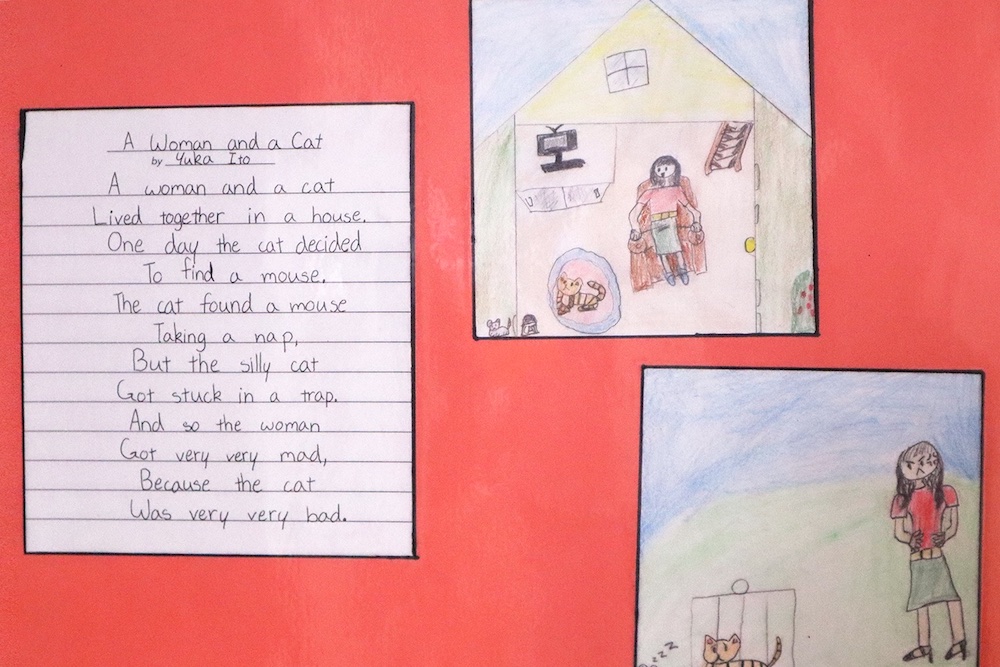 A Woman and a Cat
by Yuka Ito
A woman and a cat
Lived together in a house.
One day the cat decided
To find a mouse.
The cat found a mouse
Taking a nap,
But the silly cat
Got stuck in a trap.
And so the woman
Got very very mad,
Because the cat
Was very very bad.
zzzz